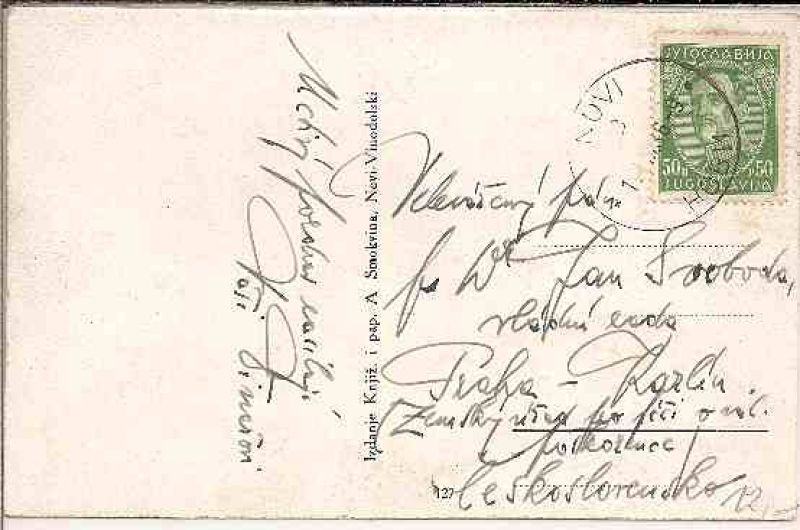 Uctivý pozdrav zasílají
Vaši
Izdanje Knjiž. i pap. A Smokvina, Novi-Vinodolski
ЈУГОСЛАВИЈА
50 50
JUGOSLAVIJA
NOVI
НОВИ
Velevážený pán
p. Dr Jan Svoboda,
vládní rada
Praha - Karlín.
Zemský úřad po péči o vál.
poškozence
Československo
127
12